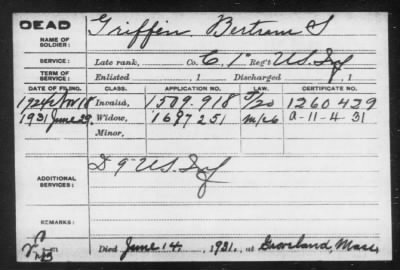 DEAD
Griffin, Bertram S
NAME OF SOLDIER:
SERVICE: Late rank, Co. C, 1" Reg't U.S. Inf
TERM OF SERVICE: Enlisted , 1 Discharged , 1
DATE OF FILING. CLASS. APPLICATION NO. LAW. CERTIFICATE NO.
1924 Nov 18 Invalid, 1509.918 1260429
1931 June 29. Widow, 1697251 A-11-4-31
Minor,
ADDITIONAL SERVICES: D 9" U.S. Inf
REMARKS:
Died June 14, 1931, at Groveland, Mass.